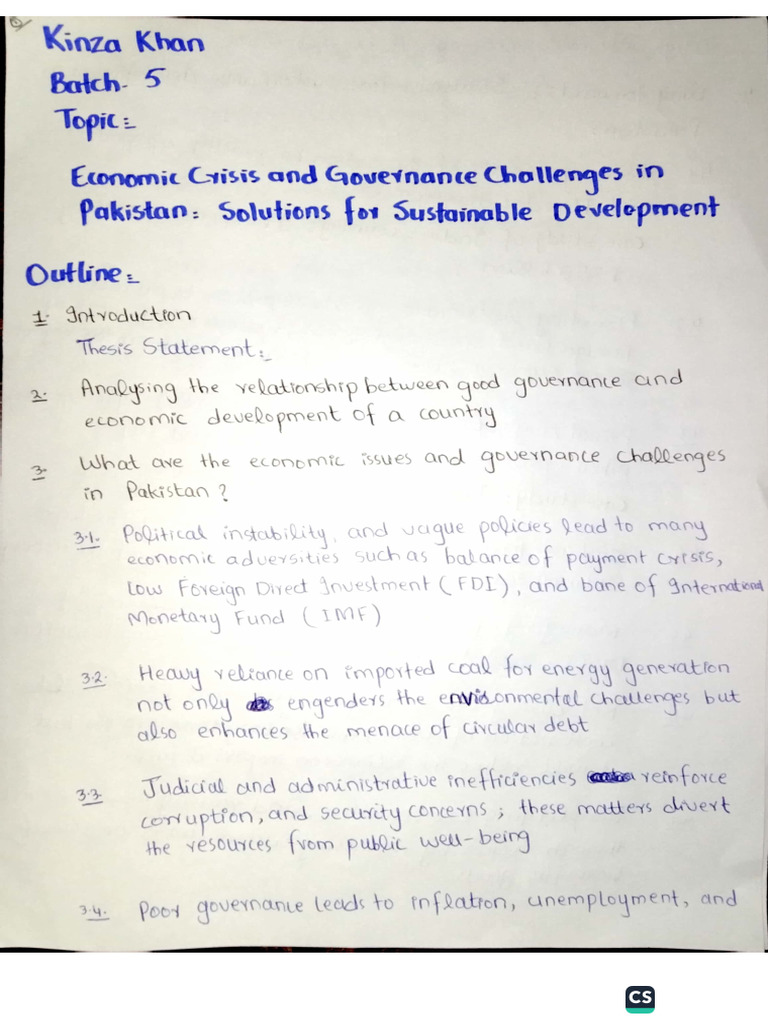 Kinza Khan
Batch- 5
Topic:-
Economic Crisis and Governance Challenges in
Pakistan: Solutions for Sustainable Development
Outline:-
1. Introduction
Thesis Statement:-
2. Analysing the relationship between good governance and
economic development of a country
3. What are the economic issues and governance challenges
in Pakistan?
3.1. Political instability, and vague policies lead to many
economic adversities such as balance of payment crisis,
low Foreign Direct Investment (FDI), and bane of International
Monetary Fund (IMF)
3.2. Heavy reliance on imported coal for energy generation
not only engenders the environmental challenges but
also enhances the menace of circular debt
3.3. Judicial and administrative inefficiencies reinforce
corruption, and security concerns; these matters divert
the resources from public well-being
3.4. Poor governance leads to inflation, unemployment, and
CS